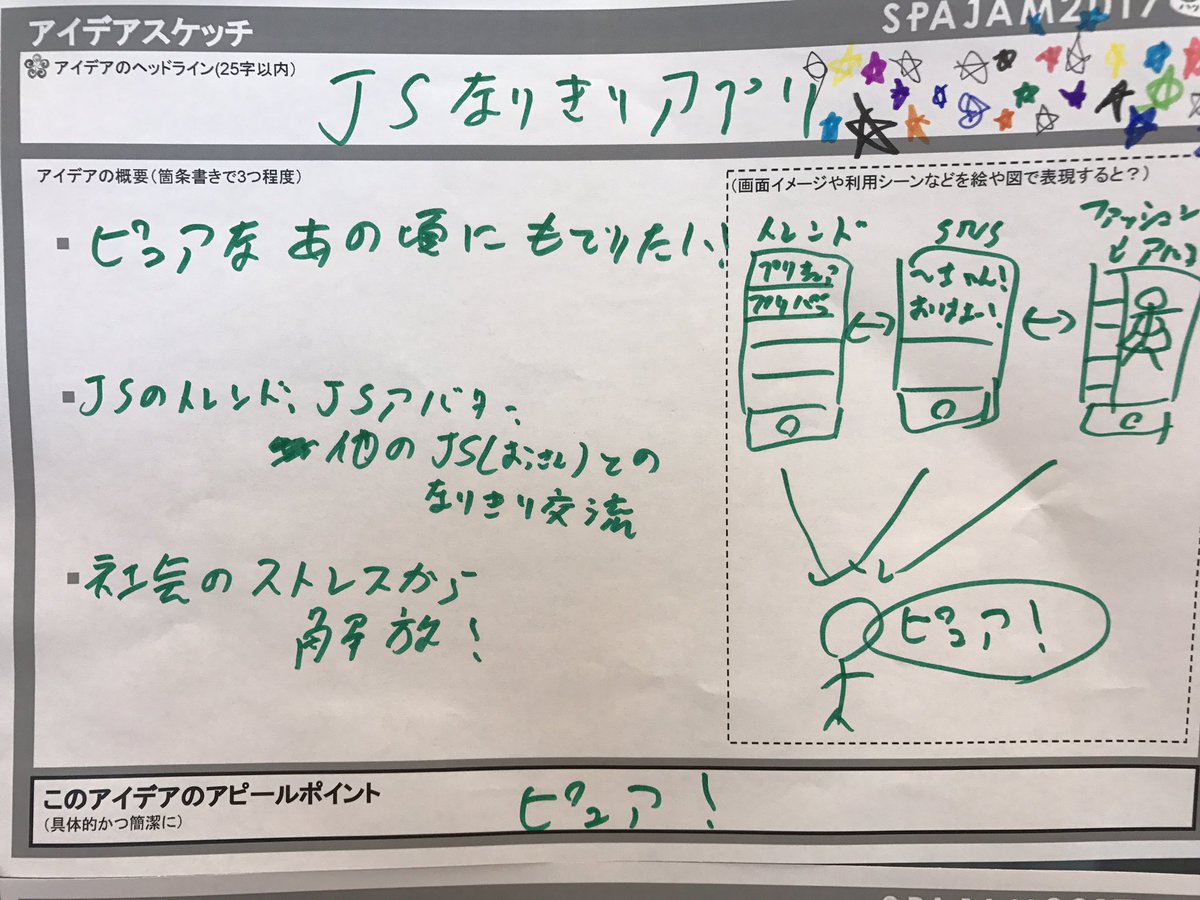 アイデアスケッチ
SPAJAM2017
アイデアのヘッドライン(25字以内)
JSなりきりアプリ
アイデアの概要(箇条書きで3つ程度)
ピュアな あの頃に もどりたい!
JSのトレンド、JSアバター、
他のJS(おっさん)との
なりきり交流
社会のストレスから
解放!
(画面イメージや利用シーンなどを絵や図で表現すると?)
トレンド
プリキュア
SNS
〜ちゃん!
おはよー!
ファッション
ピュア!
このアイデアのアピールポイント
(具体的かつ簡潔に)
ピュア!